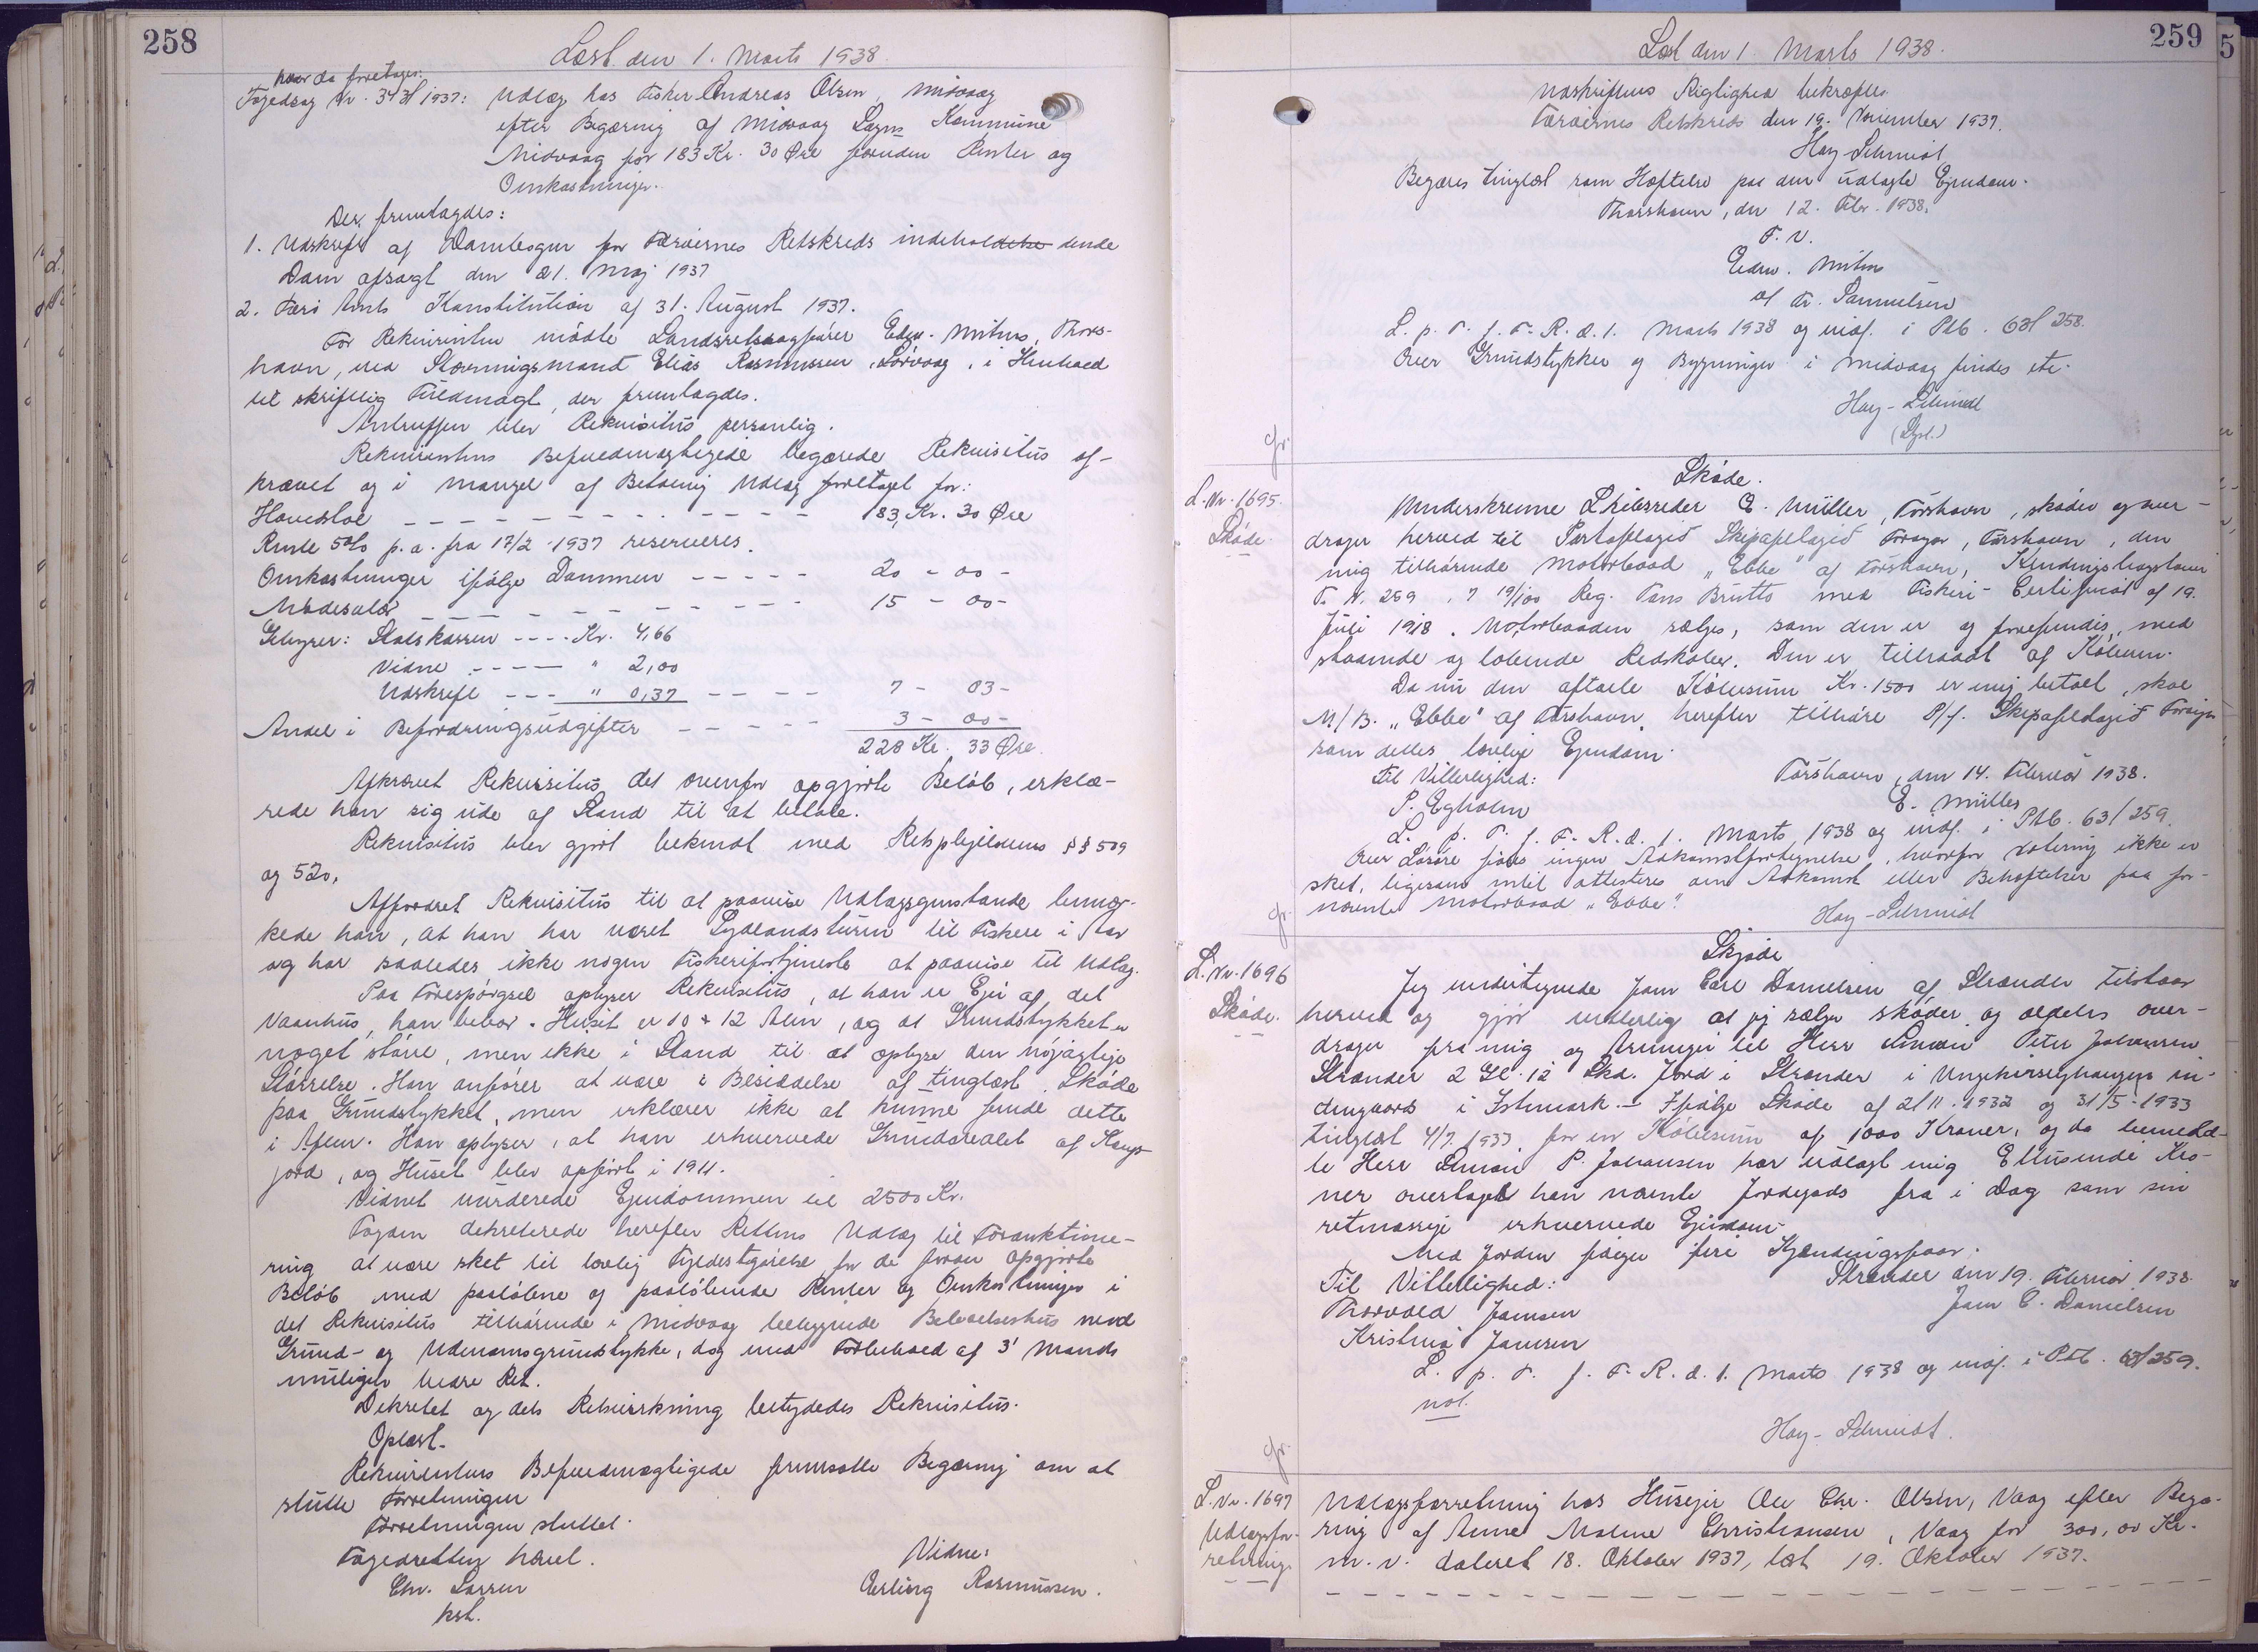 258
Læst den 1. Marts 1938
hvor da foretages:
Fogedsag Nr. 343/1937: Udlæg hos Fisker Andreas Olsen, Midvaag
efter Begæring af Midvaag Sogns Kommune
Midvaag for 183 Kr. 30 Øre foruden Renter og
Omkostninger.
Der fremlagdes:
1. Udskrift af Dombogen for Færøernes Retskreds indeholdende
Dom afsagt den 21. Maj 1937
2. Færø Amts Konstitution af 31. August 1937.
For Rekvirenten mødte Landsretssagfører Edw. Mitens, Thors-
havn, ved Stævningsmand Elias Rasmussen, Sørvaag, i Henhold
til skriftlig Fuldmagt, der fremlagdes.
Antruffen blev Rekvisitus personlig.
Rekvirentens Befuldmægtigede begærede Rekvisitus af-
krævet og i Mangel af Betaling Udlæg foretaget for:
Hovedstol 183 Kr. 30 Øre
Rente 5% p.a. fra 17/2 1937 reserveres.
Omkostninger ifølge Dommen 20 - 00 -
Mødesalær 15 - 00 -
Gebyrer: Statskassen ---- Kr. 4,66
Vidne ---- " 2,00
Udskrift --- " 0,37 ---- 7 - 03 -
Andel i Befordringsudgifter -- 3 - 00 -
228 Kr. 33 Øre.
Afkrævet Rekvisitus det ovenfor opgjorte Beløb, erklæ-
rede han sig ude af Stand til at betale.
Rekvisitus blev gjort bekendt med Retsplejelovens §§ 509
og 520.
Affordret Rekvisitus til at paavise Udlægsgenstande bemær-
kede han, at han har været Sydlandsturen til Fiskeri i Aar
og har saaledes ikke nogen Fiskerifortjeneste at paavise til Udlæg.
Paa Forespørgsel oplyser Rekvisitus, at han er Ejer af det
Vaanhus, han bebor. Huset er 10 + 12 Alen, og at Grundstykket er
noget større, men ikke i Stand til at oplyse den nøjagtige
Størrelse. Han anfører at være i Besiddelse af tinglæst Skøde
paa Grundstykket, men erklærer ikke at kunne finde dette
i Aften. Han oplyser, at han erhvervede Grundarealet af Kongs-
jord, og Huset blev opført i 1911.
Vidnet vurderede Ejendommen til 2500 Kr.
Fogden dekreterede herefter Rettens Udlæg til Forsanktione-
ring at være sket til lovlig Fyldestgørelse for de foran opgjorte
Beløb med paaløbne og paaløbende Renter og Omkostninger i
det Rekvisitus tilhørende i Midvaag beliggende Beboelseshus med
Grund- og Udenomsgrundstykke, dog med Forbehold af 3' Mands
muligen bedre Ret.
Dekretet og dets Retsvirkning betydedes Rekvisitus.
Oplæst.
Rekvirentens Befuldmægtigede fremsatte Begæring om at
slutte Forretningen
Forretningen sluttet.
Fogedretten hævet.
Chr. Larsen
kst.
Vidne:
Erling Rasmussen.
259
Læst den 1. Marts 1938.
Udskriftens Rigtighed bekræftes.
Færøernes Retskreds den 19. November 1937.
Hay-Schmidt
Begæres tinglæst som Hæftelse paa den udlagte Ejendom.
Thorshavn, den 12. Febr. 1938.
F. V.
Edw. Mitens
af Fr. Samuelsen
L. p. T. f. F. R. d. 1. Marts 1938 og indf. i Ptb. 63/258.
Over Grundstykker og Bygninger i Midvaag findes etc.
Hay-Schmidt
gr.
L. Nr. 1695.
Skøde.
Skøde.
Underskrevne Skibsreder E. Müller, Tórshavn, skøder og over-
drager herved til Partafelagið Skipafelagið Føroyar, Tórshavn, den
mig tilhørende Motorbaad "Ebba" af Tórshavn, Kendingsbogstaver
T. N. 259, 7 19/100 Reg. Tons Brutto med Fiskeri-Certifikat af 19.
Juli 1918. Motorbaaden sælges, som den er og forefindes, med
staaende og løbende Redskaber. Den er tiltraadt af Køberen.
Da nu den aftalte Købesum Kr. 1500 er mig betalt, skal
M/B. "Ebba" af Tórshavn herefter tilhøre P/f. Skipafelagið Føroyar
som dettes lovlige Ejendom.
Til Vitterlighed:
P. Egholm
Tórshavn, den 14. Februar 1938.
E. Müller
L. p. T. f. F. R. d. 1. Marts 1938 og indf. i Ptb. 63/259.
Over Løsøre føres ingen Adkomstfortegnelse, hvorfor Notering ikke er
sket, ligesom intet attesteres om Adkomst eller Behæftelser paa for-
nævnte Motorbaad "Ebba".
Hay-Schmidt
gr.
L. Nr. 1696
Skøde.
Skjøde
Jeg undertegnede Jam Carl Danielsen af Strænder tilstaar
herved og gjør vitterlig at jeg sælger skøder og aldeles over-
drager fra mig og Arvinger til Herr Simon Peter Johansen
Strænder 2 Gl. 12 Skd. Jord i Strænder i in-
dengaards i Istmark. - Ifølge Skøde af 2/11-1932 og 31/5-1933
tinglæst 4/7. 1933 for en Købesum af 1000 Kroner, og da bemeld-
te Herr Simon P. Johansen har udlagt mig Ettusinde Kro-
ner overtaget han nævnte Jordegods fra i Dag som sin
retmæssige erhvervede Ejendom.
Med Jorden følger fire Kjændingsfaar.
Til Vitterlighed:
Thorvald Jamsen
Kristina Jamsen
Strænder den 19. Februar 1938.
Jam C. Danielsen
L. p. T. f. F. R. d. 1. Marts 1938 og indf. i Ptb. 63/259.
not.
Hay-Schmidt.
gr.
L. Nr. 1697
Udlægsfor-
retning
Udlægsforretning hos Husejer Ole Chr. Olsen, Vaag efter Begæ-
ring af Anne Malene Christiansen, Vaag for 300,00 Kr.
m. v. dateret 18. Oktober 1937, læst 19. Oktober 1937.